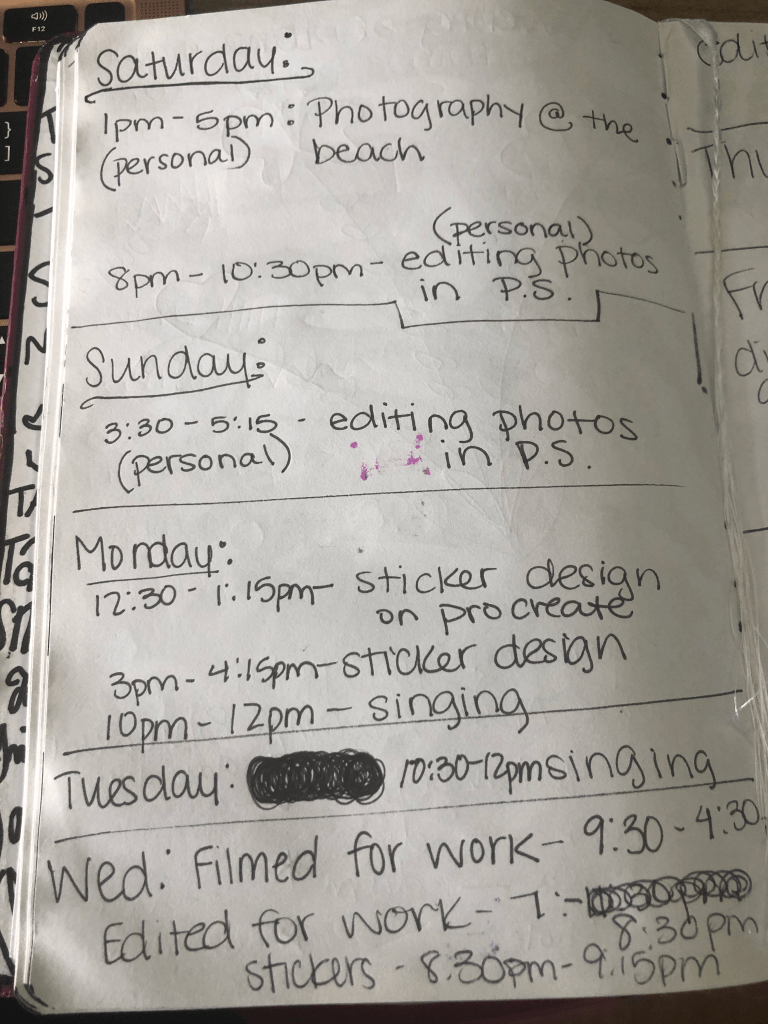 F12
}
]
Saturday:
1pm - 5pm : Photography @ the
(personal) beach
(personal)
8pm - 10:30pm - editing photos
in P.S.
Sunday:
3:30 - 5:15 - editing photos
(personal) in P.S.
Monday:
12:30 - 1:15pm - sticker design
on procreate
3pm - 4:15pm - sticker design
10pm - 12pm - singing
Tuesday: 10:30-12pm singing
Wed: Filmed for work - 9:30 - 4:30
Edited for work - 7: -
8:30pm
stickers - 8:30pm - 9:15pm